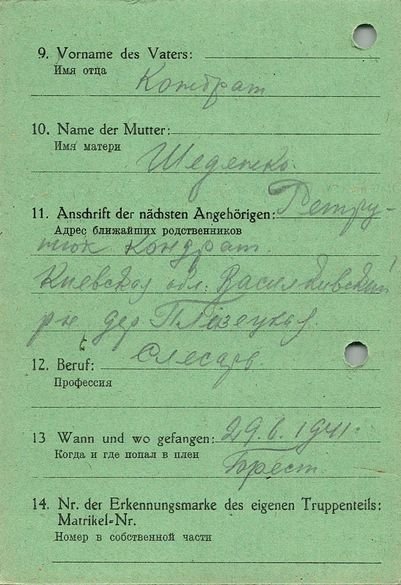 9. Vorname des Vaters:
Имя отца
Кондрат
10. Name der Mutter:
Имя матери
Шеденко.
11. Anschrift der nächsten Angehörigen: Петру-
Адрес ближайших родственников
нюк Кондрат.
Киевская обл. Васильковский
р-н дер.
12. Beruf: Слесарь.
Профессия
13 Wann und wo gefangen: 29.6.1941.
Когда и где попал в плен
Брест.
14. Nr. der Erkennungsmarke des eigenen Truppenteils:
Matrikel-Nr.
Номер в собственной части